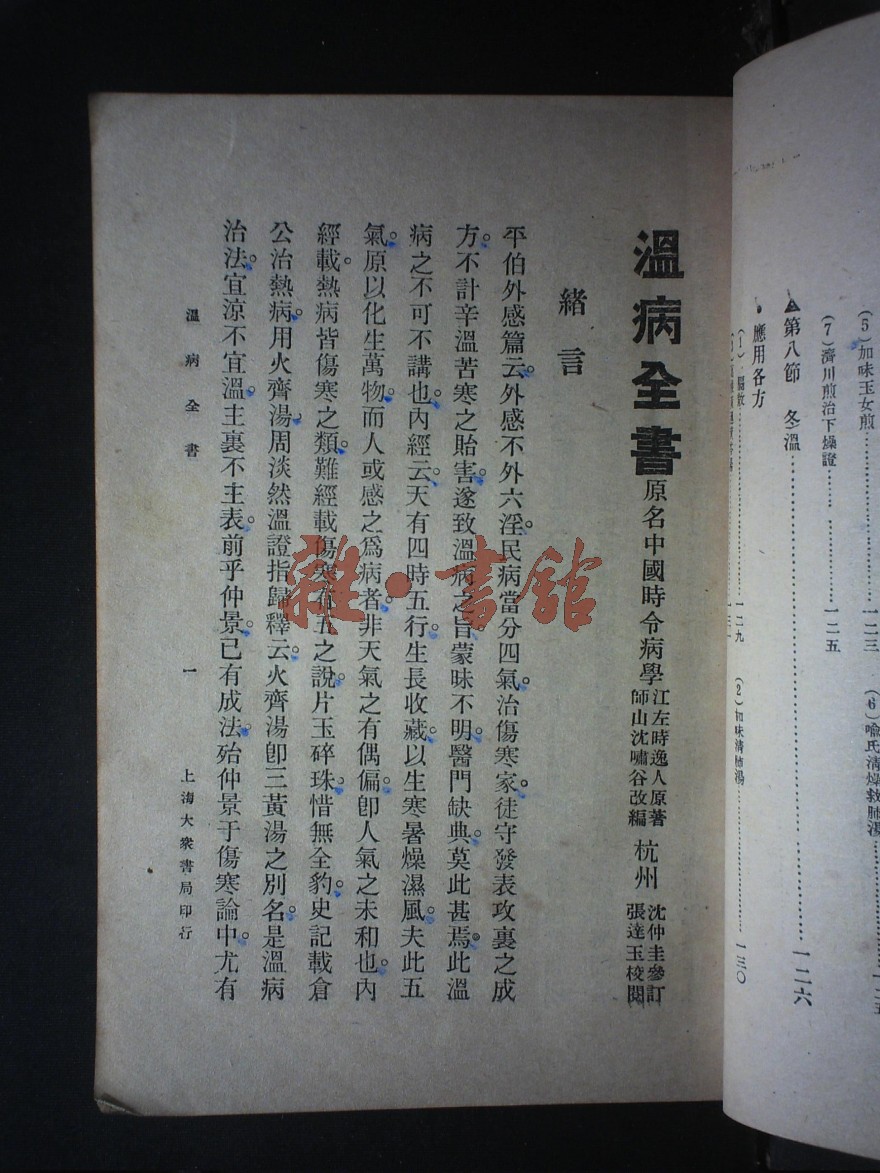 (5)加味玉女煎……一二三
(6)喻氏清燥救肺湯……一二五
(7)濟川煎治下燥證……一二五
▲第八節 冬溫……一二六
•應用各方
一二九
(2)加味清肺湯……一三〇
溫病全書 原名中國時令病學 江左時逸人原著 師山沈嘯谷改編 杭州 沈仲圭參訂 張達玉校閱
緒言
平伯外感篇云。外感不外六淫。民病當分四氣。治傷寒家。徒守發表攻裏之成
方。不計辛溫苦寒之貽害。遂致溫病之旨。蒙昧不明。醫門缺典。莫此甚焉。此溫
病之不可不講也。內經云。天有四時五行。生長收藏。以生寒暑燥濕風。夫此五
氣。原以化生萬物。而人或感之爲病者。非天氣之有偶偏。卽人氣之未和也。內
經載熱病皆傷寒之類。難經載傷寒有五之說。片玉碎珠。惜無全豹。史記載倉
公治熱病。用火齊湯。周淡然溫證指歸釋云。火齊湯卽三黃湯之別名。是溫病
治法。宜涼不宜溫。主裏不主表。前乎仲景。已有成法。殆仲景于傷寒論中。尤有
溫病全書 一 上海大衆書局印行
雜·書館